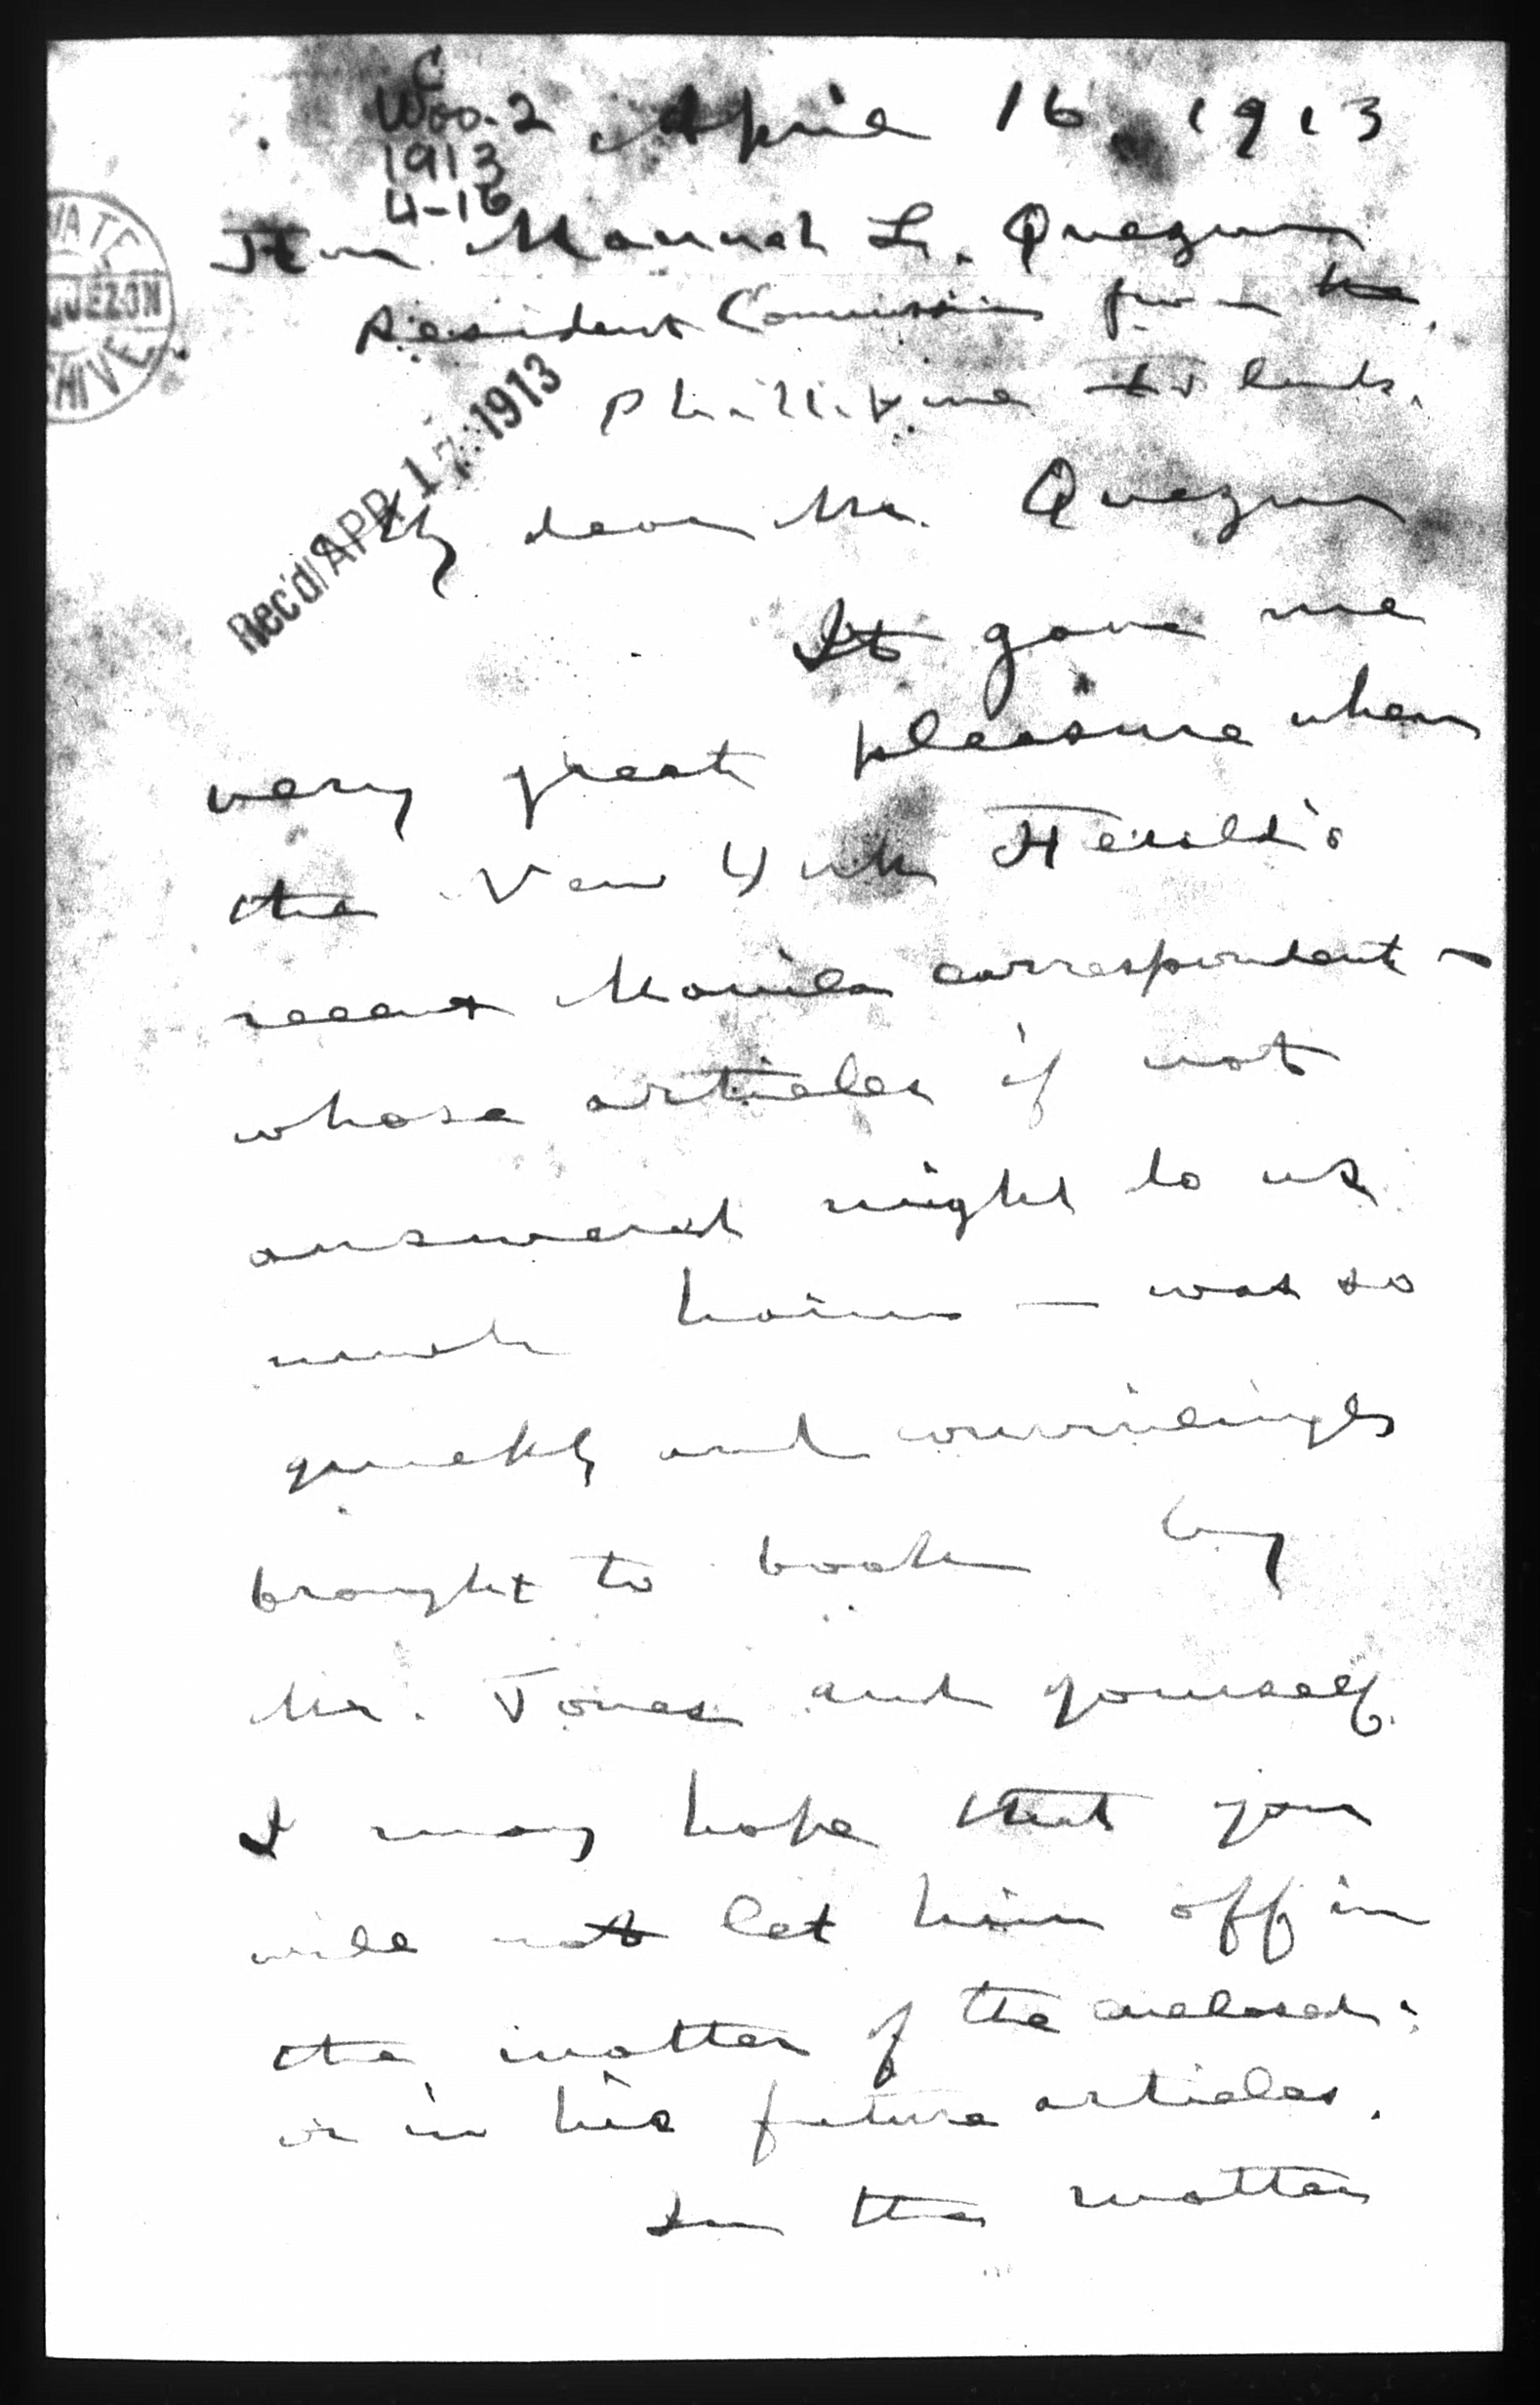 C
Woo-2
1913
4-16
April 16, 1913
VATE
QUEZON
CHIVE
Hon Manuel L. Quezon
Resident Commissioner from the
Phillipine Islands.
Rec'd APR 17 1913
My dear Mr. Quezon
It gave me
very great pleasure when
the New York Herald's
recent Manila correspondent -
whose articles if not
answered might do us
much harm — was so
quickly and convincingly
brought to book by
Mr. Jones and yourself.
I may hope that you
will not let him off in
the matter of the enclosed;
or in his future articles.
In the matter